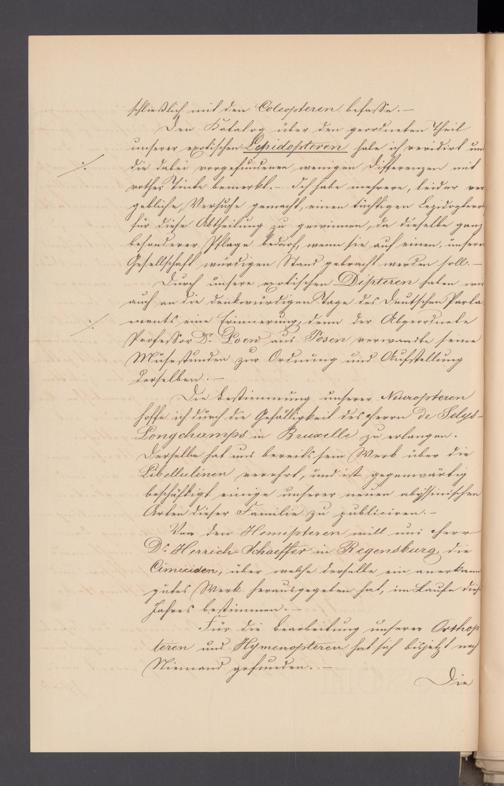 schließlich mit den Coleopteren befasse. —
Den Katalog über den geordneten Theil
unserer exotischen Lepidopteren habe ich revidirt un
die dabei vorgefundenen wenigen Differenzen mit
rother Tinte bemerkt. — Ich habe mehrere, leider ver
gebliche, Versuche gemacht, einen tüchtigen Lepidopter
für diese Abtheilung zu gewinnen, da dieselbe ganz
besonderer Pflege bedarf, wenn sie auf einen, unserer
Gesellschaft würdigen Stand gebracht werden soll. —
Durch unsere exotischen Dipteren haben wir
auch an die denkwürdigen Tage des Deutschen Parla
ments eine Erinnerung, denn der Abgeordnete
Professor Dr. Loew aus Posen verwandte seine
Mußestunden zur Ordnung und Aufstellung
derselben. —
Die Bestimmung unserer Neuropteren
hoffe ich durch die Gefälligkeit des Herrn de Selys-
Longchamps in Bruxelle zu erlangen.
Derselbe hat uns bereits sein Werk über die
Libellulinen verehrt, und ist gegenwärtig
beschäftigt einige unserer neuen abyssinischen
Arten dieser Familie zu publiciren. —
Von den Hemipteren will uns Herr
Dr. Herrich-Schaeffer in Regensburg die
Cimiciden, über welche derselbe ein anerkann
gutes Werk herausgegeben hat, im Laufe dies
Jahres bestimmen. —
Für die Bearbeitung unserer Orthop
teren und Hymenopteren hat sich bis jetzt noch
Niemand gefunden. —
Die